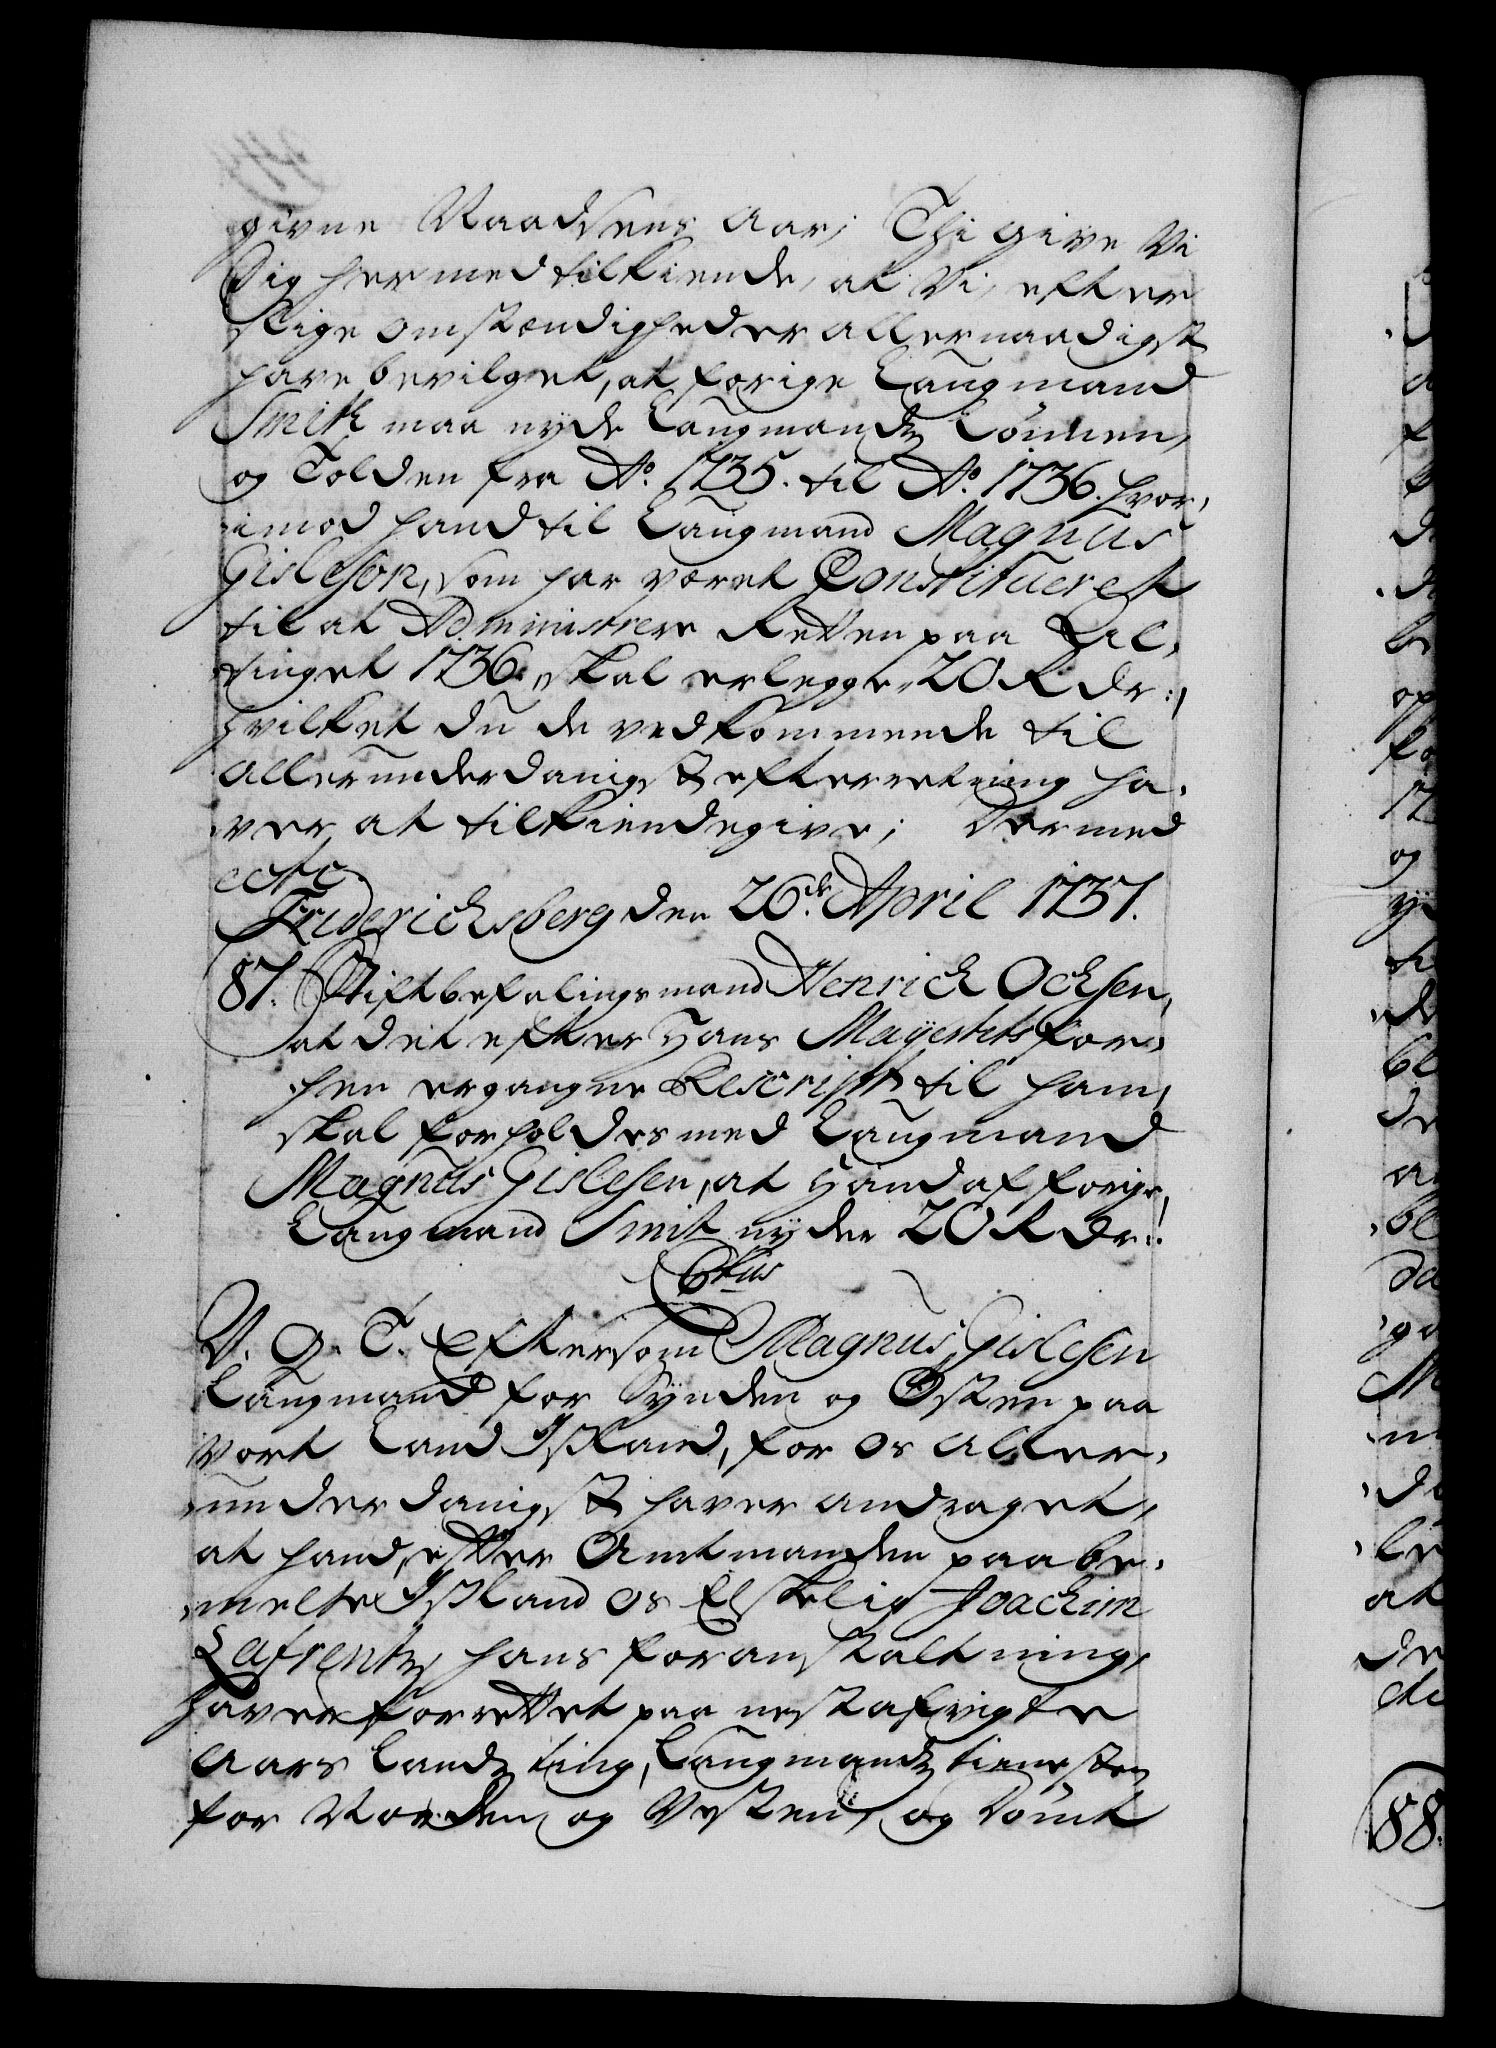 givne Naadsens Aar; Thi give Vi
Dig hermed tilkiende, at Vi, efter
slige omstændigheder allernaadigst
have bevilget, at forige Laugmand
Smith maa nyde Laugmands Lönnen,
og Tolden fra Ao. 1735. til Ao. 1736. hvor,
imod hand til Laugmand Magnus
Gisleson, som har været Constitueret
til at Administrere Retten paa Al,
tinget 1736, skal erlegge 20 Rdr:,
hvilket du de vedkommende til
allerunderdanigst efterretning ha,
ver at tilkiendegive; Dermed
etc.
Friderichsberg den 26de April 1737.
87. Stiftbefalingsmand Henrich Ochsen,
at det efter Hans Mayestets for,
hen ergangne Rescript til ham,
skal forholdes med Laugmand
Magnus Gislesen, at Hand af forige
Laugmand Smit nyder 20 Rdr:
C6tus
V. G. T. Eftersom Magnus Gislesen
Laugmand for Synden og Østen paa
Vort Land Island, for os aller,
underdanigst haver andraget,
at hand, efter Amtmanden paa be,
melte Island os Elskelig Joachim
Lafrentz hans foranstaltning,
haver forrettet paa nestafvigte
Aars Lands ting, Laugmands tienesten
for Norden og Vesten, og Dömt
88.